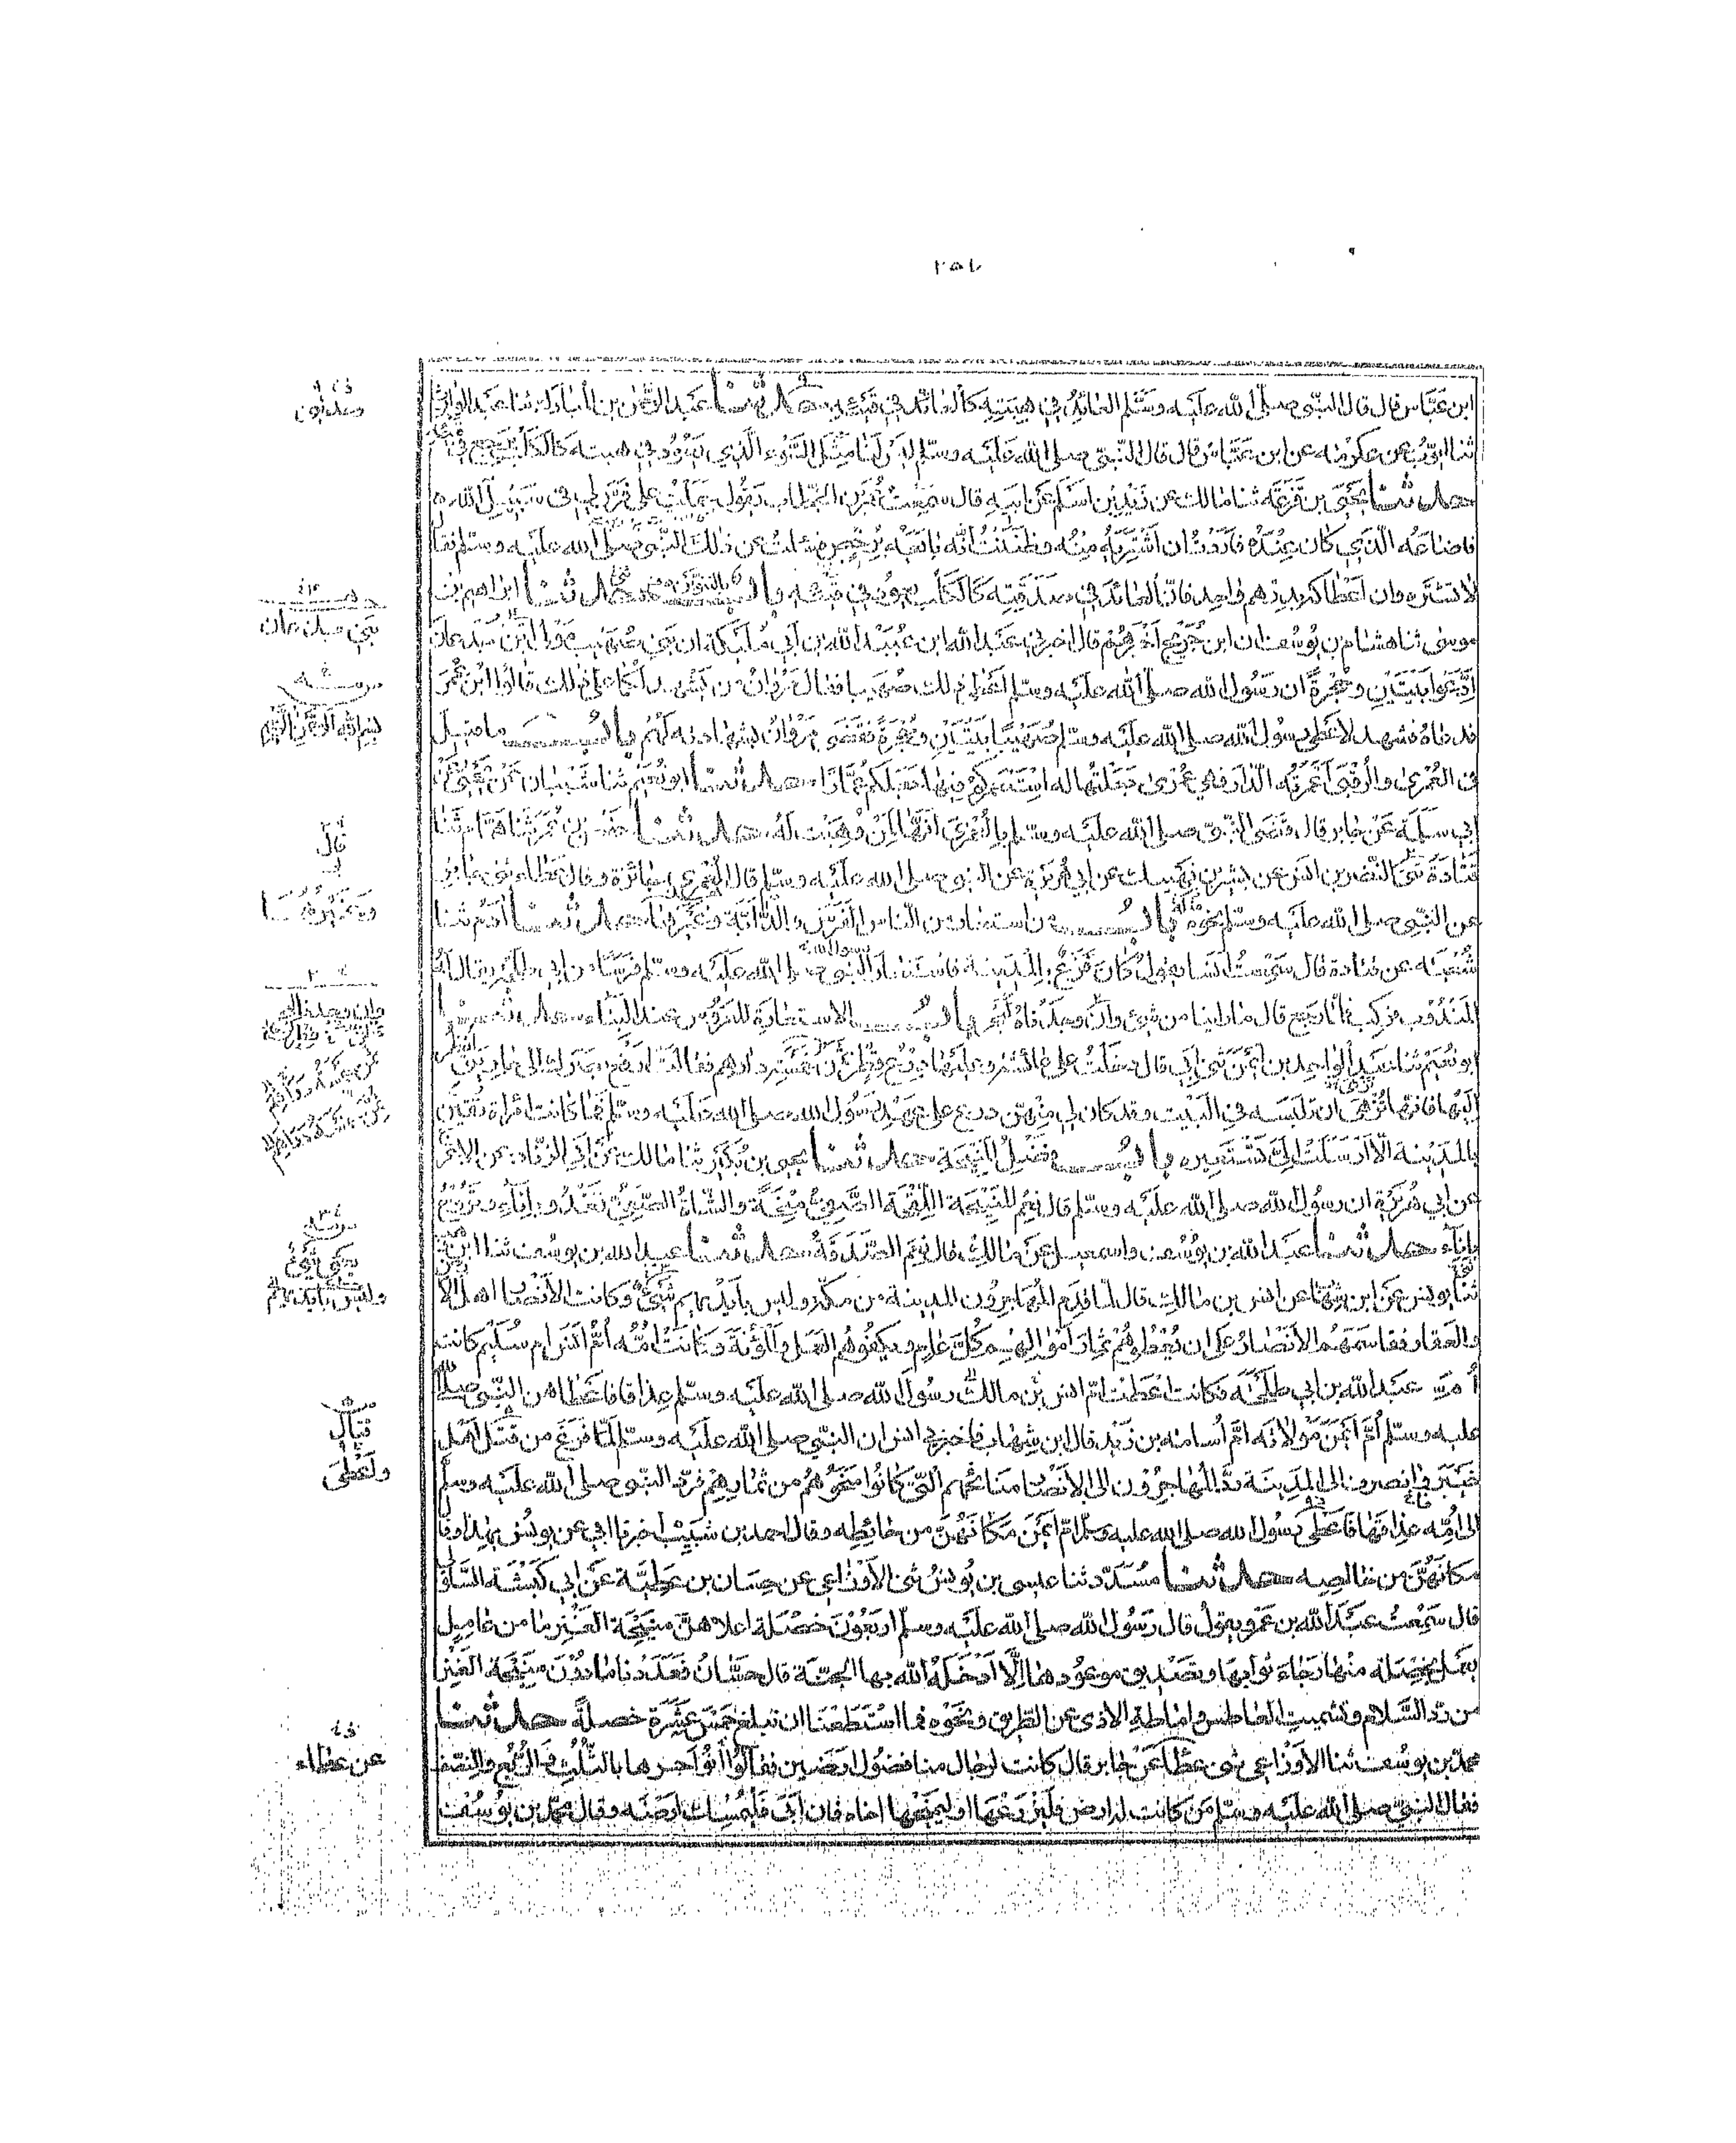 ابن عباس قال قال النبي صلى الله عليه وسلم العائد في هبته كالعائد في قيئه حدثنا عبد الرحمن بن المبارك ثنا عبد الوارث
ثنا ايوب عن عكرمة عن ابن عباس قال قال النبي صلى الله عليه وسلم ليس لنا مثل السوء الذي يعود في هبته كالكلب يرجع في قيئه
حدثنا يحيى بن قزعة ثنا مالك عن زيد بن اسلم عن ابيه قال سمعت عمر بن الخطاب يقول حملت على فرس لي في سبيل الله
فاضاعه الذي كان عنده فاردت ان اشتريه منه وظننت انه بائعه برخص فسئلت عن ذلك النبي صلى الله عليه وسلم فقال
لا تشتره وان اعطاكه بدرهم واحد فان العائد في صدقته كالكلب يعود في قيئه باب حدثنا ابراهيم بن
موسى ثنا هشام بن يوسف ان ابن جريج اخبرهم قال اخبرني عبد الله ابن عبيد الله بن ابي مليكة ان بني صهيب مولى ابن جدعان
ادعوا بيتين وحجرة ان رسول الله صلى الله عليه وسلم اعطى ذلك صهيبا فقال مروان من يشهد لكما على ذلك قالوا ابن عمر
فدعاه فشهد لاعطى رسول الله صلى الله عليه وسلم صهيبا بيتين وحجرة فقضى مروان بشهادته لهم باب ما قيل
في العمرى والرقبى اعمرته الدار فهي عمرى جعلتها له استعمركم فيها جعلكم عمارا حدثنا ابو نعيم ثنا شيبان عن يحيى عن
ابي سلمة عن جابر قال قضى النبي صلى الله عليه وسلم بالعمرى انها لمن وهبت له حدثنا حفص بن عمر ثنا همام ثنا
قتادة ثني النضر بن انس عن بشير بن نهيك عن ابي هريرة عن النبي صلى الله عليه وسلم قال العمرى جائزة وقال عطاء ثني جابر
عن النبي صلى الله عليه وسلم نحوه باب من استعار من الناس الفرس والدابة وغيرها حدثنا ادم ثنا
شعبة عن قتادة قال سمعت انسا يقول كان فزع بالمدينة فاستعار النبي صلى الله عليه وسلم فرسا من ابي طلحة يقال له
المندوب فركب فلما رجع قال ما راينا من شيء وان وجدناه لبحرا باب الاستعارة للعروس عند البناء حدثنا
ابو نعيم ثنا عبد الواحد بن ايمن ثني ابي قال دخلت على عائشة وعليها درع قطر ثمن خمسة دراهم فقالت ارفع بصرك الى جاريتي انظر
اليها فانها تزهى ان تلبسه في البيت وقد كان لي منهن درع على عهد رسول الله صلى الله عليه وسلم فما كانت امراة تقين
بالمدينة الا ارسلت الي تستعيره باب فضل المنيحة حدثنا يحيى بن بكير ثنا مالك عن ابي الزناد عن الاعرج
عن ابي هريرة ان رسول الله صلى الله عليه وسلم قال نعم المنيحة اللقحة الصفي منحة والشاة الصفي تغدو باناء وتروح
باناء حدثنا عبد الله بن يوسف واسمعيل عن مالك قال نعم الصدقة حدثنا عبد الله بن يوسف ثنا ابن وهب
ثنا يونس عن ابن شهاب عن انس بن مالك قال لما قدم المهاجرون المدينة من مكة وليس بايديهم شيء وكانت الانصار اهل الارض
والعقار فقاسمهم الانصار على ان يعطوهم ثمار اموالهم كل عام ويكفوهم العمل والمؤنة وكانت امه ام انس ام سليم كانت
ام عبد الله بن ابي طلحة فكانت اعطت ام انس بن مالك رسول الله صلى الله عليه وسلم عذاقا فاعطاهن النبي صلى الله
عليه وسلم ام ايمن مولاته ام اسامة بن زيد قال ابن شهاب فاخبرني انس ان النبي صلى الله عليه وسلم لما فرغ من قتل اهل
خيبر فانصرف الى المدينة رد المهاجرون الى الانصار منائحهم التي كانوا منحوهم من ثمارهم فرد النبي صلى الله عليه وسلم
الى امه عذاقها فاعطى رسول الله صلى الله عليه وسلم ام ايمن مكانهن من حائطه وقال احمد بن شبيب اخبرنا ابي عن يونس بهذا وقال
مكانهن من خالصه حدثنا مسدد ثنا عيسى بن يونس ثني الاوزاعي عن حسان بن عطية عن ابي كبشة السلولي
قال سمعت عبد الله بن عمرو يقول قال رسول الله صلى الله عليه وسلم اربعون خصلة اعلاهن منيحة العنز ما من عامل
يعمل بخصلة منها رجاء ثوابها وتصديق موعودها الا ادخله الله بها الجنة قال حسان فعددنا ما دون منيحة العنز
من رد السلام وتشميت العاطس واماطة الاذى عن الطريق ونحوه فما استطعنا ان تبلغ خمس عشرة خصلة حدثنا
محمد بن يوسف ثنا الاوزاعي ثني عطاء عن جابر قال كانت لرجال منا فضول ارضين فقالوا نؤاجرها بالثلث والربع والنصف
فقال النبي صلى الله عليه وسلم من كانت له ارض فليزرعها او ليمنحها اخاه فان ابى فليمسك ارضه وقال محمد بن يوسف
بني
بسم الله الرحمن الرحيم
قال
وليس بايديهم
قتال
واعطى
عن عطاء